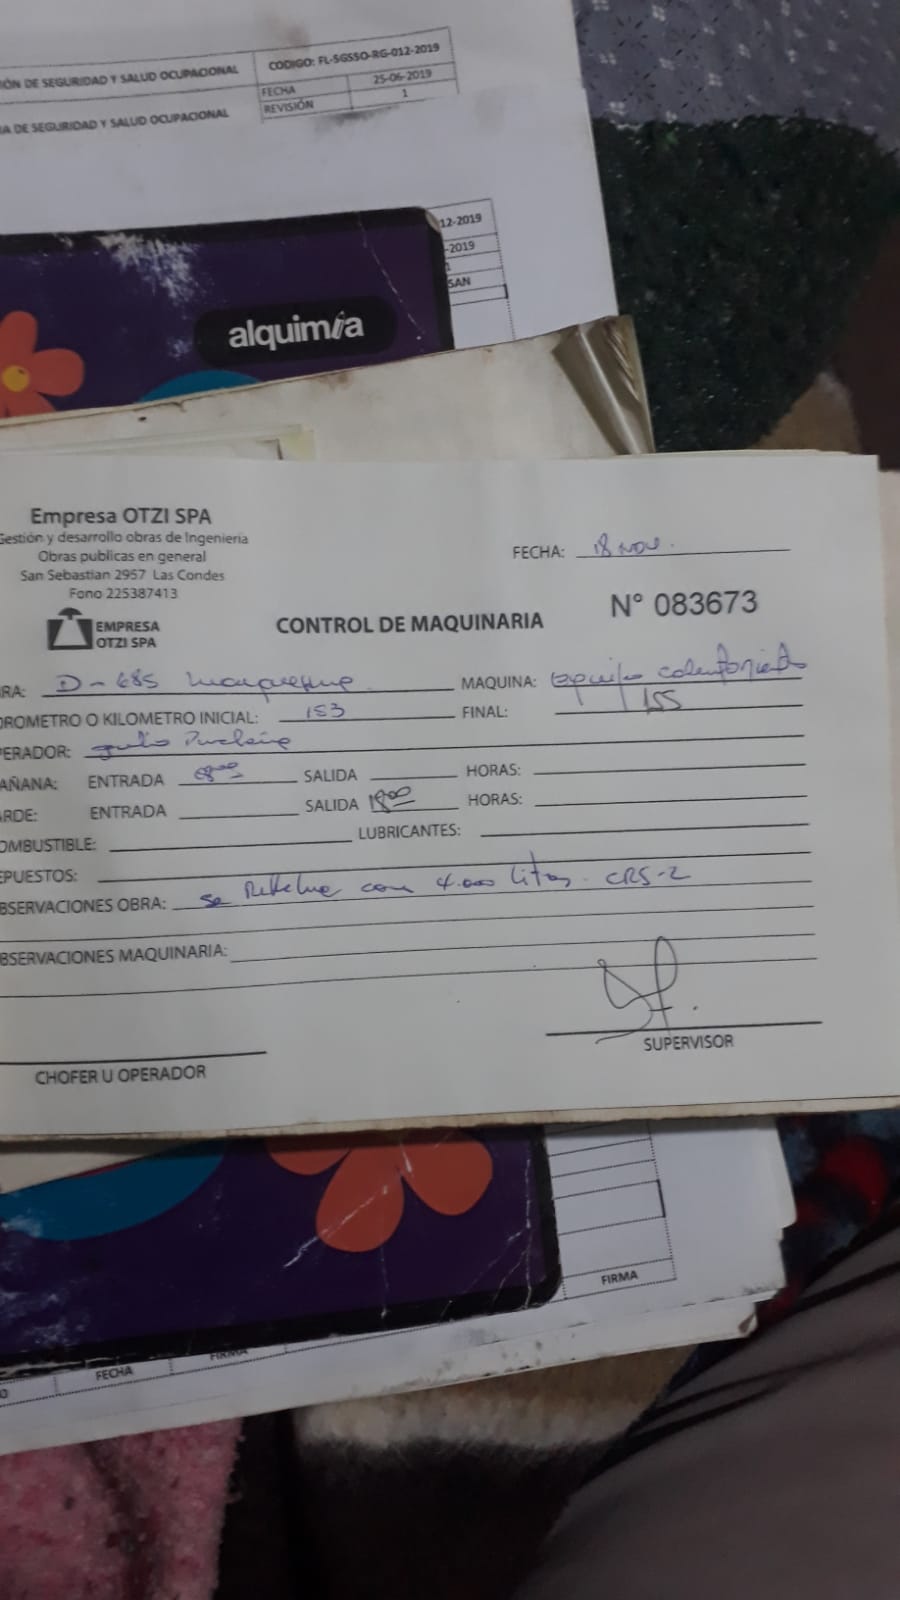 IÓN DE SEGURIDAD Y SALUD OCUPACIONAL
CODIGO: FL-SGSSO-RG-012-2019
FECHA 25-06-2019
REVISIÓN 1
A DE SEGURIDAD Y SALUD OCUPACIONAL
12-2019
-2019
1
SAN
alquimia
Empresa OTZI SPA
Gestión y desarrollo obras de Ingeniería
Obras publicas en general
San Sebastian 2957 Las Condes
Fono 225387413
EMPRESA
OTZI SPA
FECHA: 18 Nov.
CONTROL DE MAQUINARIA
N° 083673
RA: D-685 MAQUINA: Equipo
OROMETRO O KILOMETRO INICIAL: 153 FINAL: 155
PERADOR: Julio
AÑANA: ENTRADA 08:00 SALIDA HORAS:
ARDE: ENTRADA SALIDA 18:00 HORAS:
OMBUSTIBLE: LUBRICANTES:
EPUESTOS:
BSERVACIONES OBRA: se con 4.000 litros. CRS-2
BSERVACIONES MAQUINARIA:
CHOFER U OPERADOR
SUPERVISOR
FIRMA
O FECHA FIRMA